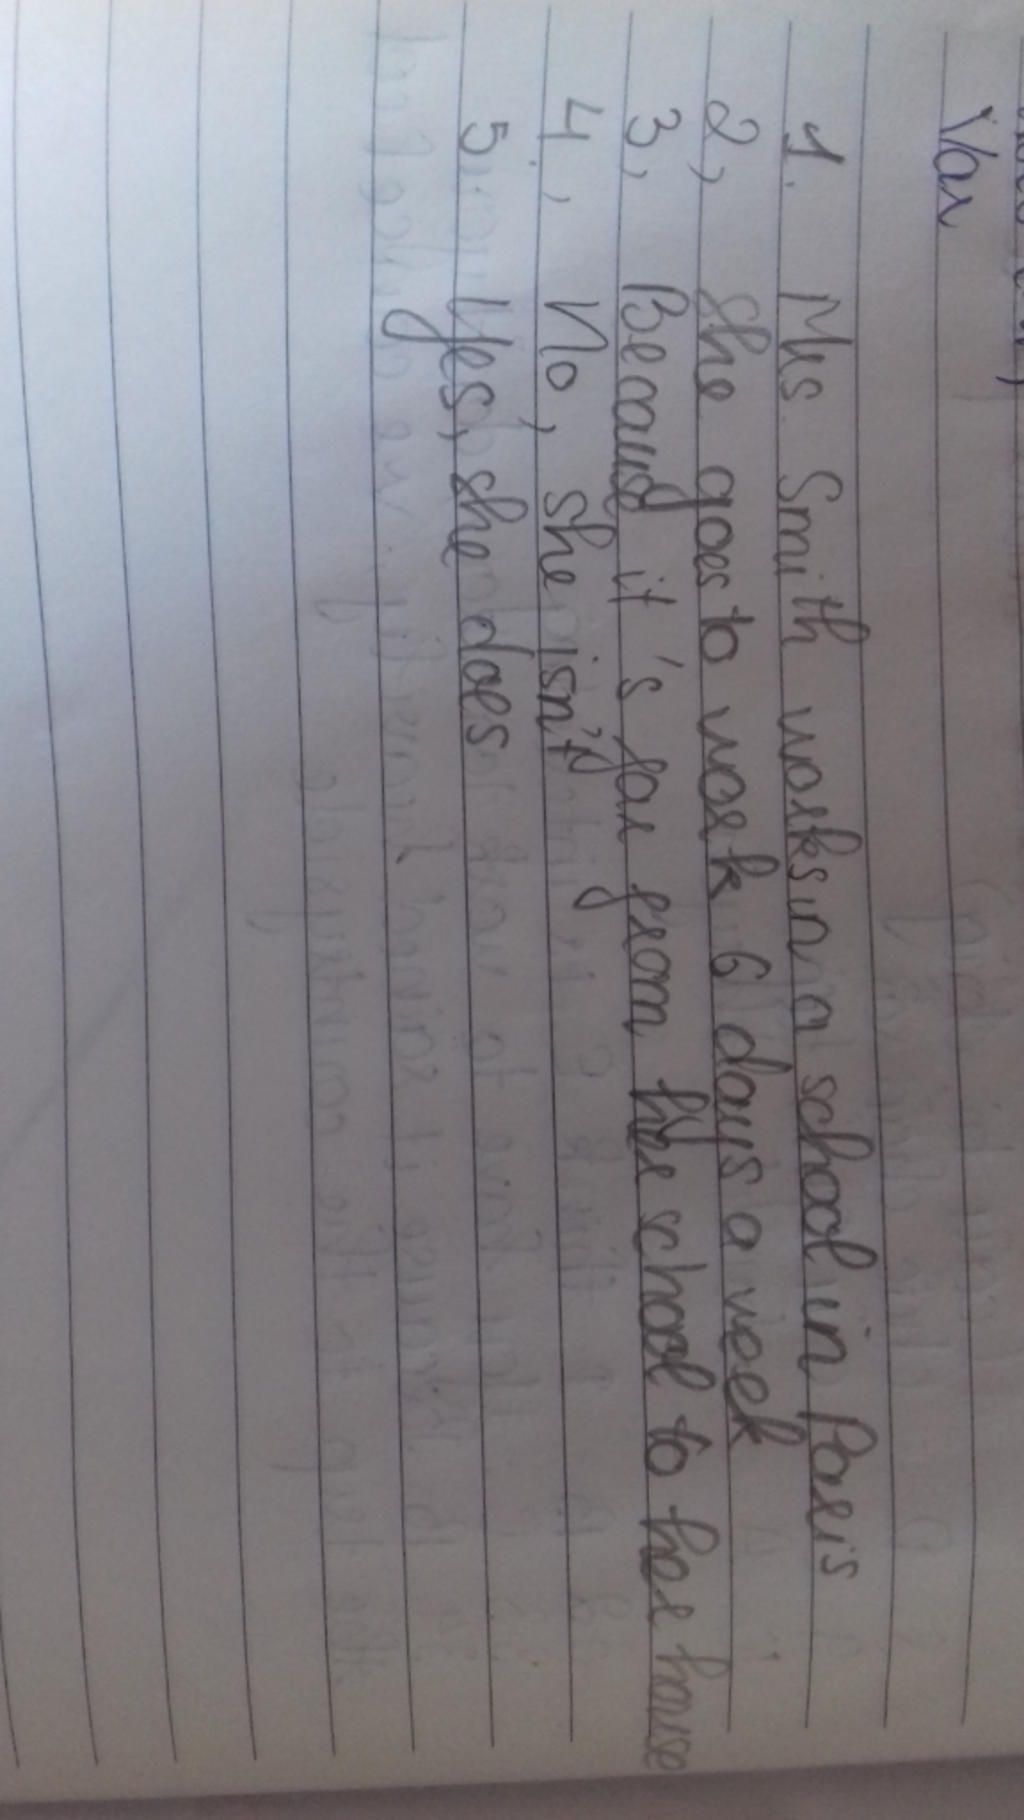 Var
1. Mrs. Smith works in a school in Paris
2, She goes to work 6 days a week
3, Because it's far from her school to her house
4, No, she isn't
5, Yes, she does